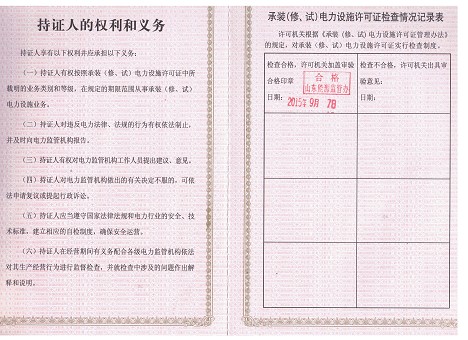 持证人的权利和义务
持证人享有以下权利并应承担以下义务：
（一）持证人有权按照承装（修、试）电力设施许可证中所
载明的业务类别和等级，在规定的期限范围从事承装（修、试）
电力设施业务。
（二）持证人对违反电力法律、法规的行为有权依法制止，
并及时向电力监管机构报告。
（三）持证人有权对电力监管机构工作人员提出建议、意见。
（四）持证人对电力监管机构做出的有关决定不服的，可依
法申请复议或提起行政诉讼。
（五）持证人应当遵守国家法律法规和电力行业的安全、技
术标准，建立相应的自检制度，确保安全运营。
（六）持证人在经营期间有义务配合各级电力监管机构依法
对其生产经营行为进行监督检查，并就检查中涉及的问题作出解
释和说明。
承装（修、试）电力设施许可证检查情况记录表
许可机关根据《承装（修、试）电力设施许可证管理办法》
的规定，对承装（修、试）电力设施许可证实行检查制度。
检查合格，许可机关加盖审验
合格印章
日期：
合格
山东能源监管办
2015年9月7日
检查不合格，许可机关出具审
验意见：
日期：